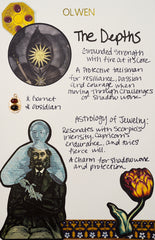 OLWEN
The Depths
Grounded strength
with fire at its core.
A protective talisman
for resilience, passion
and courage when
moving through challenges
or shadow work.
& garnet
& obsidian
Astrology of Jewelry:
Resonates with Scorpio's
intensity, Capricorn's
endurance, and Aries'
fierce will.
A charm for shadow work
and protection.